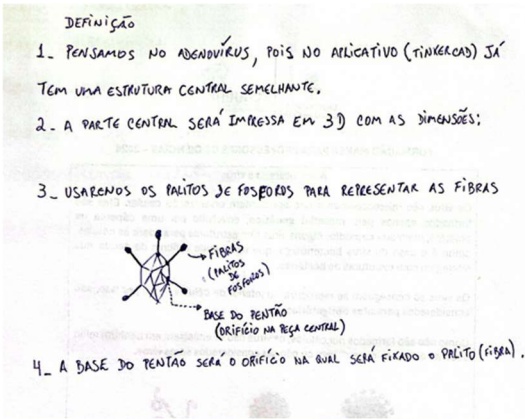 DEFINIÇÃO
1_ PENSAMOS NO ADENOVÍRUS, POIS NO APLICATIVO (TINKERCAD) JÁ
TEM UMA ESTRUTURA CENTRAL SEMELHANTE.
2_ A PARTE CENTRAL SERÁ IMPRESSA EM 3D COM AS DIMENSÕES:
3_ USAREMOS OS PALITOS DE FOSFOROS PARA REPRESENTAR AS FIBRAS
FIBRAS
(PALITOS
DE
FOSFOROS)
BASE DO PENTÃO
(ORIFÍCIO NA PEÇA CENTRAL)
4_ A BASE DO PENTÃO SERÁ O ORIFÍCIO NA QUAL SERÁ FIXADO O PALITO (FIBRA).